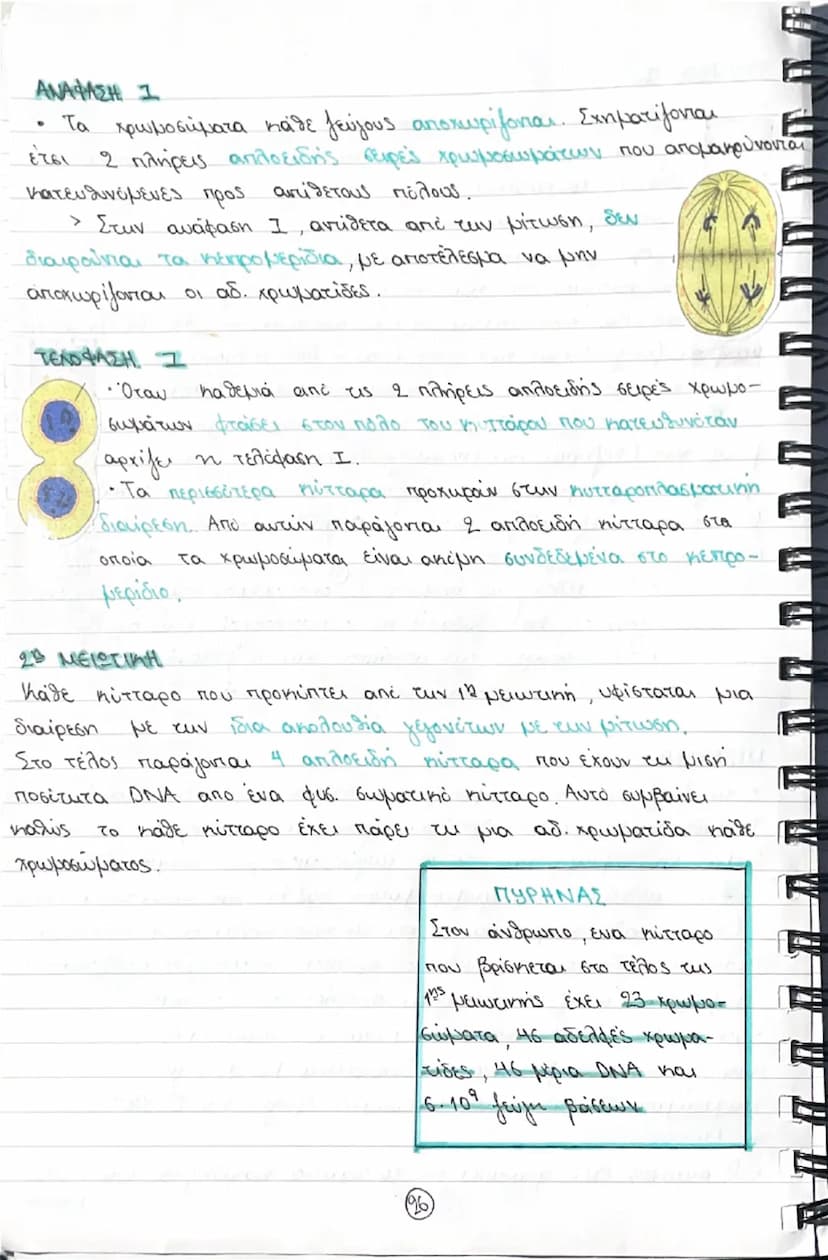 ΑΝΑΦΑΣΗ Ι
• Τα χρωμοσώματα κάθε ζεύγους αποχωρίζονται. Σχηματίζονται
έτσι 2 πλήρεις απλοειδής σειρές χρωμοσωμάτων που απομακρύνονται
κατευθυνόμενες προς αντίθετους πόλους.
> Στην ανάφαση Ι, αντίθετα από την μίτωση, δεν
διαιρούνται τα κεντρομερίδια, με αποτέλεσμα να μην
αποχωρίζονται οι αδ. χρωματίδες.
ΤΕΛΟΦΑΣΗ Ι
• Όταν καθεμιά από τις 2 πλήρεις απλοειδής σειρές χρωμο-
σωμάτων φτάσει στον πόλο του κυττάρου που κατευθυνόταν
αρχίζει η τελόφαση Ι.
• Τα περισσότερα κύτταρα προχωράν στην κυτταροπλασματική
διαίρεση. Από αυτήν παράγονται 2 απλοειδή κύτταρα στα
οποία τα χρωμοσώματα είναι ακόμη συνδεδεμένα στο κεντρο-
μερίδιο.
2η ΜΕΙΩΤΙΚΗ
Κάθε κύτταρο που προκύπτει από την 1η μειωτική, υφίσταται μια
διαίρεση με την ίδια ακολουθία γεγονότων με την μίτωση.
Στο τέλος παράγονται 4 απλοειδή κύτταρα που έχουν τη μιση
ποσότητα DNA απο ένα φυσ. σωματικό κύτταρο. Αυτό συμβαίνει
καθώς το κάθε κύτταρο έχει πάρει τη μια αδ. χρωματίδα κάθε
χρωμοσώματος.
ΠΥΡΗΝΑΣ
Στον άνθρωπο, ενα κύτταρο
που βρίσκεται στο τέλος της
1ης μειωτικής έχει 23 χρωμο-
σώματα, 46 αδελφές χρωμα-
τίδες, 46 μόρια DNA και
6·10⁹ ζεύγη βάσεων
96